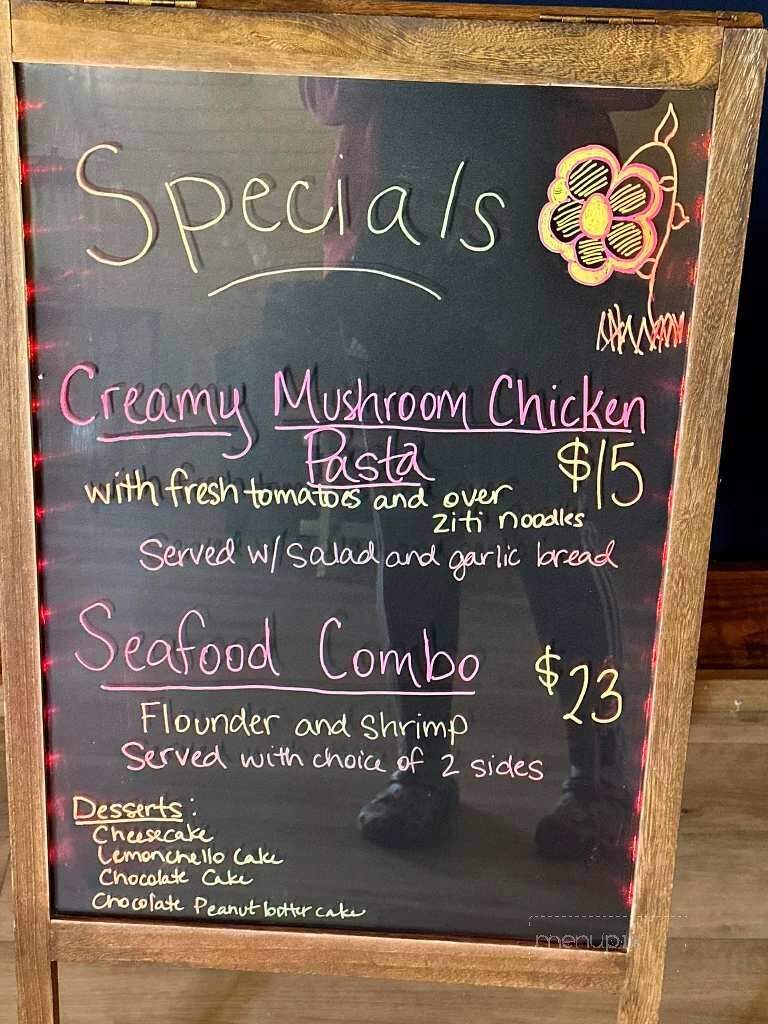 Specials
Creamy Mushroom Chicken
Pasta $15
with fresh tomatoes and over
ziti noodles
Served w/ salad and garlic bread
Seafood Combo $23
Flounder and shrimp
Served with choice of 2 sides
Desserts:
Cheesecake
Lemonchello Cake
Chocolate Cake
Chocolate Peanut butter cake